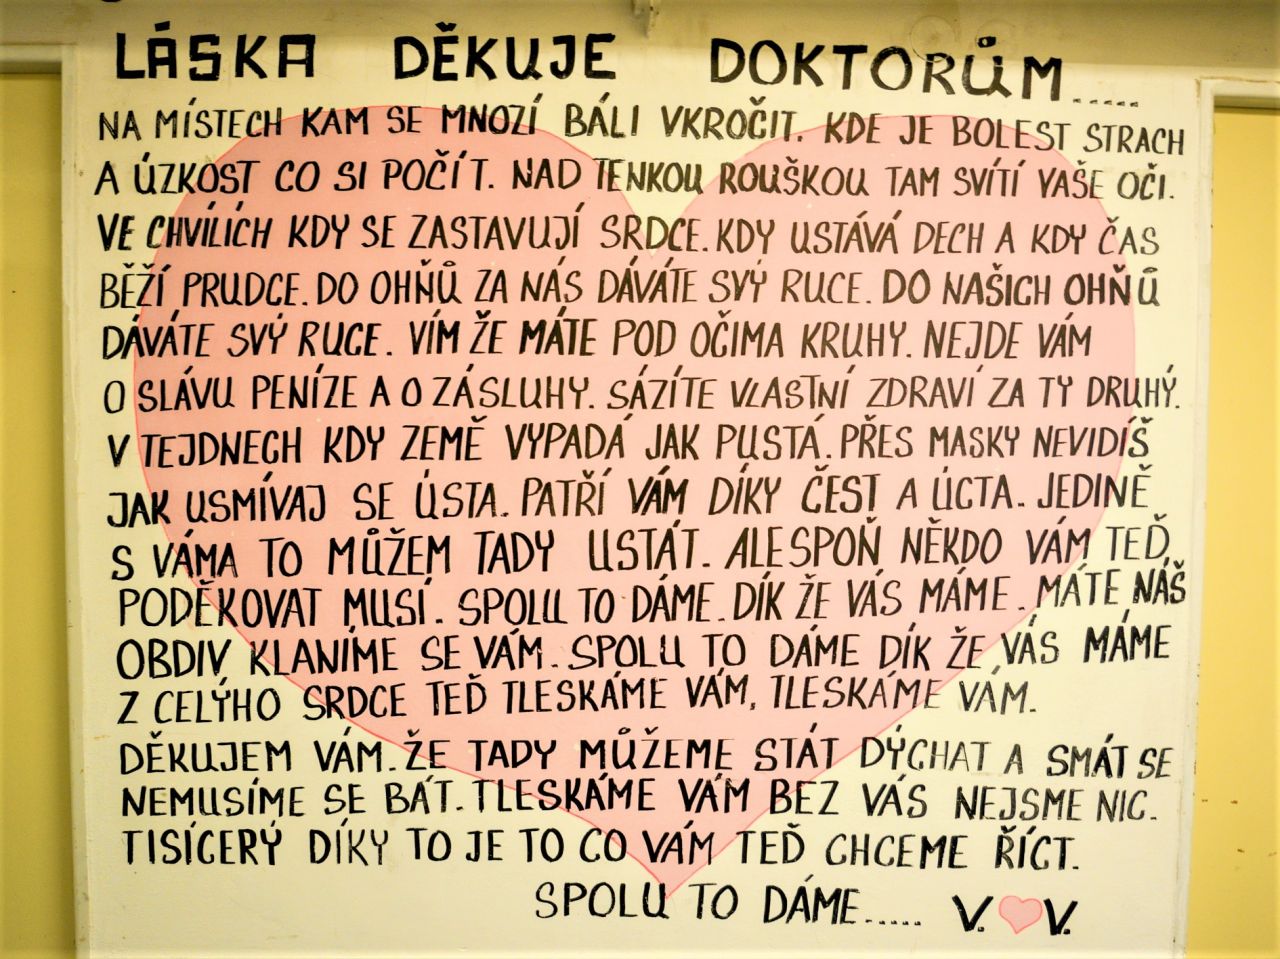 LÁSKA DĚKUJE DOKTORŮM.....
NA MÍSTECH KAM SE MNOZÍ BÁLI VKROČIT. KDE JE BOLEST STRACH
A ÚZKOST CO SI POČÍT. NAD TENKOU ROUŠKOU TAM SVÍTÍ VAŠE OČI.
VE CHVÍLÍCH KDY SE ZASTAVUJÍ SRDCE. KDY USTÁVÁ DECH A KDY ČAS
BĚŽÍ PRUDCE. DO OHŇŮ ZA NÁS DÁVÁTE SVÝ RUCE. DO NAŠICH OHŇŮ
DÁVÁTE SVÝ RUCE. VÍM ŽE MÁTE POD OČIMA KRUHY. NEJDE VÁM
O SLÁVU PENÍZE A O ZÁSLUHY. SÁZÍTE VLASTNÍ ZDRAVÍ ZA TY DRUHÝ.
V TEJDNECH KDY ZEMĚ VYPADÁ JAK PUSTÁ. PŘES MASKY NEVIDÍŠ
JAK USMÍVAJ SE ÚSTA. PATŘÍ VÁM DÍKY ČEST A ÚCTA. JEDINĚ
S VÁMA TO MŮŽEM TADY USTÁT. ALESPOŇ NĚKDO VÁM TEĎ
PODĚKOVAT MUSÍ. SPOLU TO DÁME. DÍK ŽE VÁS MÁME. MÁTE NÁŠ
OBDIV KLANÍME SE VÁM. SPOLU TO DÁME DÍK ŽE VÁS MÁME
Z CELÝHO SRDCE TEĎ TLESKÁME VÁM, TLESKÁME VÁM.
DĚKUJEM VÁM. ŽE TADY MŮŽEME STÁT DÝCHAT A SMÁT SE
NEMUSÍME SE BÁT. TLESKÁME VÁM BEZ VÁS NEJSME NIC.
TISÍCERÝ DÍKY TO JE TO CO VÁM TEĎ CHCEME ŘÍCT.
SPOLU TO DÁME..... V. V.